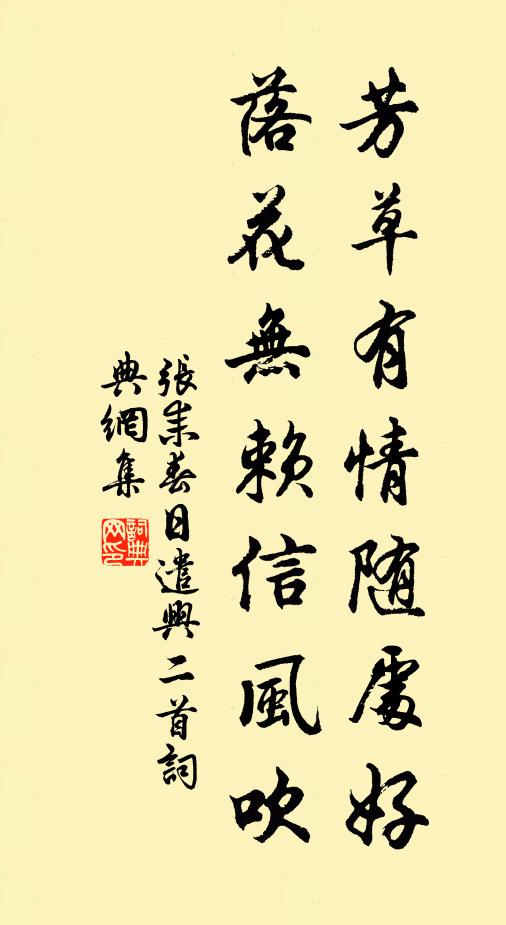 芳草有情随處好
落花無賴信風吹
張耒春日遣興二首詞
典網集
詞典網印